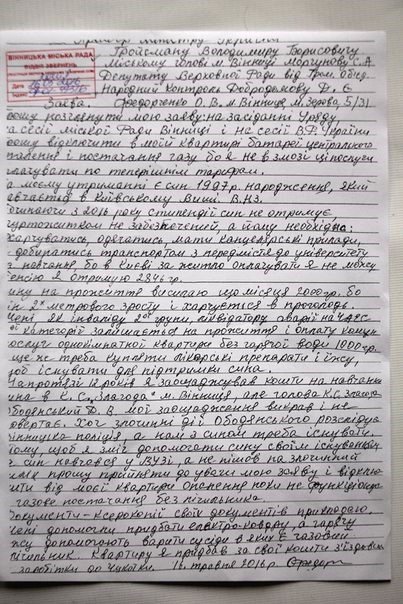 Прем'єр Міністру України
ВІННИЦЬКА МІСЬКА РАДА
ВІДДІЛ ЗВЕРНЕНЬ
Дата
Гройсману Володимиру Борисовичу
Міському голові м Вінниці Моргунову С.А.
Депутату Верховної Ради від Гром. обєд.
Народний контроль Добродомову Д. Є
Заява. Федорченко О.В. м Вінниця, м. Зерова, 5/31.
розглянути мою заяву на засіданні Уряду,
на сесії міської Ради Вінниці і на сесії В.Р. України
прошу відключити в моїй квартирі батареї центрального
опалення і постачання газу бо я не в змозі ці послуги
оплачувати по теперішнім тарифам.
На моєму утриманні є син 1997 р. народження, який
навчається в Київському Виші. В.Н.З.
Починаючи з 2016 року стипендії син не отримує
гуртожитком не забезпечений, а йому необхідно:
харчуватись, одягатись, мати канцелярські прилади,
добиратись транспортом з передмістя до університету
на навчання бо в Києві за житло оплачувати я не можу
пенсію я отримую 2846 гр.
сину на прожиття висилаю що місяця 2000 гр. бо
він 2х метрового зросту і харчується в проголодь.
мені як інваліду 2ої групи, ліквідатору аварії на ЧАЕС
категорії залишається на прожиття і оплату комун.
послуг однокімнатної квартири без гарячої води 1000 гр.
ще же треба купляти лікарські препарати і їжу,
щоб існувати для підтримки сина.
На протязі 12 років я заощаджував кошти на навчання
сина в К.С. "Злагода" м. Вінниця, але голова К.С. Злагода
Ободянський Д. В. мої заощадження викрав і не
повертає. Хоч злочинні дії Ободянського розслідує
вінницька поліція, а нам з сином треба існувати.
Тому щоб я зміг допомогти сину своїм існуванням
син навчався у ВУЗі, а не пішов на злочинний
шлях прошу прийняти до уваги мою заяву і відклю-
чити від моєї квартири опалення поки не функціонує
газове постачання без лічильника.
Документи - ксерокопії своїх документів прикладаю.
мені допомогли придбати електро-ковдру, а гарячу
їжу допомагають варити сусіди в яких є газовий
лічильник. Квартиру я придбав за свої кошти з'їздивши
заробітки до Чукотки. 16 травня 2016 р.